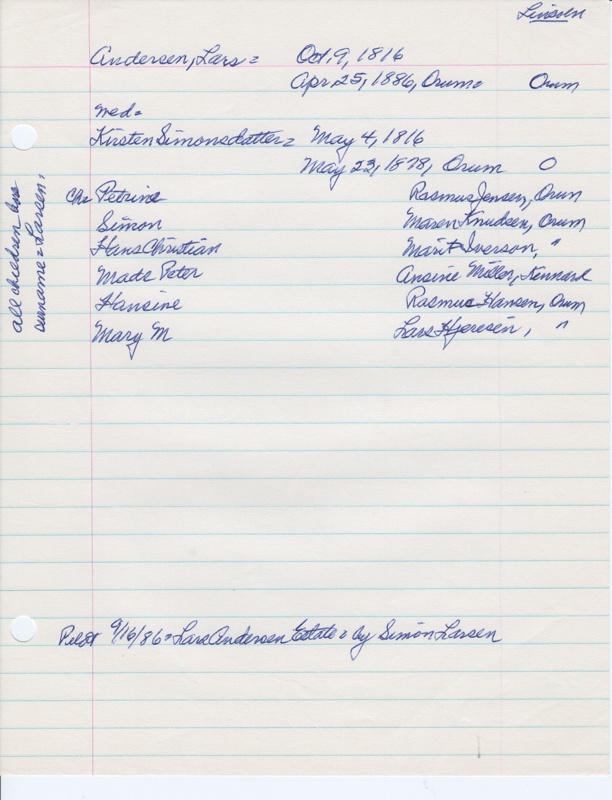 Lincoln
Andersen, Lars = Oct. 9, 1816
Apr. 25, 1886, Orum = Orum
Med =
Kirsten Simonsdatter = May 4, 1816
May 23, 1878, Orum O
Ch = Petrine Rasmus Jensen, Orum
Simon Maren Knudsen, Orum
Hans Christian Marit Iverson, "
Mads Peter Ansine Miller, Kennard
Hansine Rasmus Hansen, Orum
Mary M Lars Hjeresen, "
all children use
surname = Larsen.
Pilot 9/16/86 = Lars Andersen Estate = by Simon Larsen